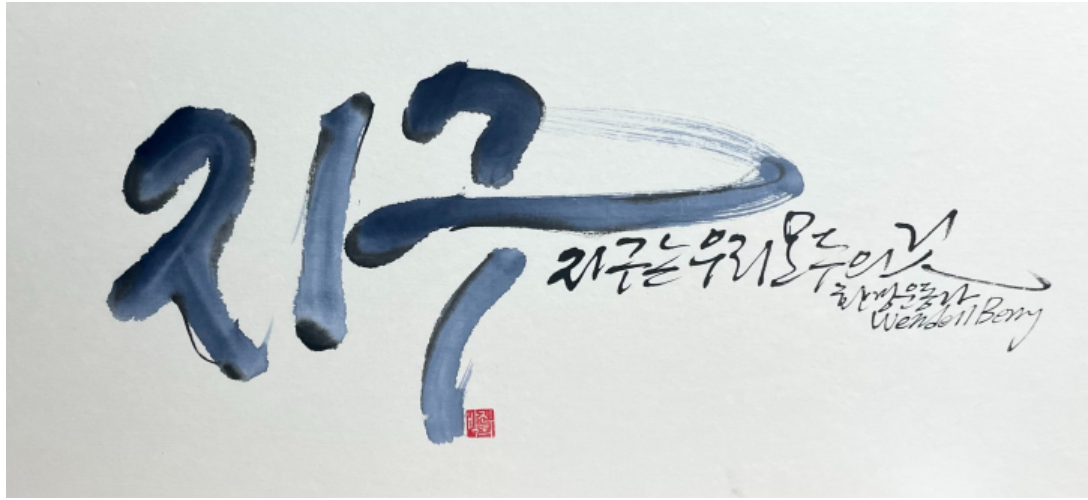 지구
지구는 우리 모두의 것
환경운동가
Wendell Berry